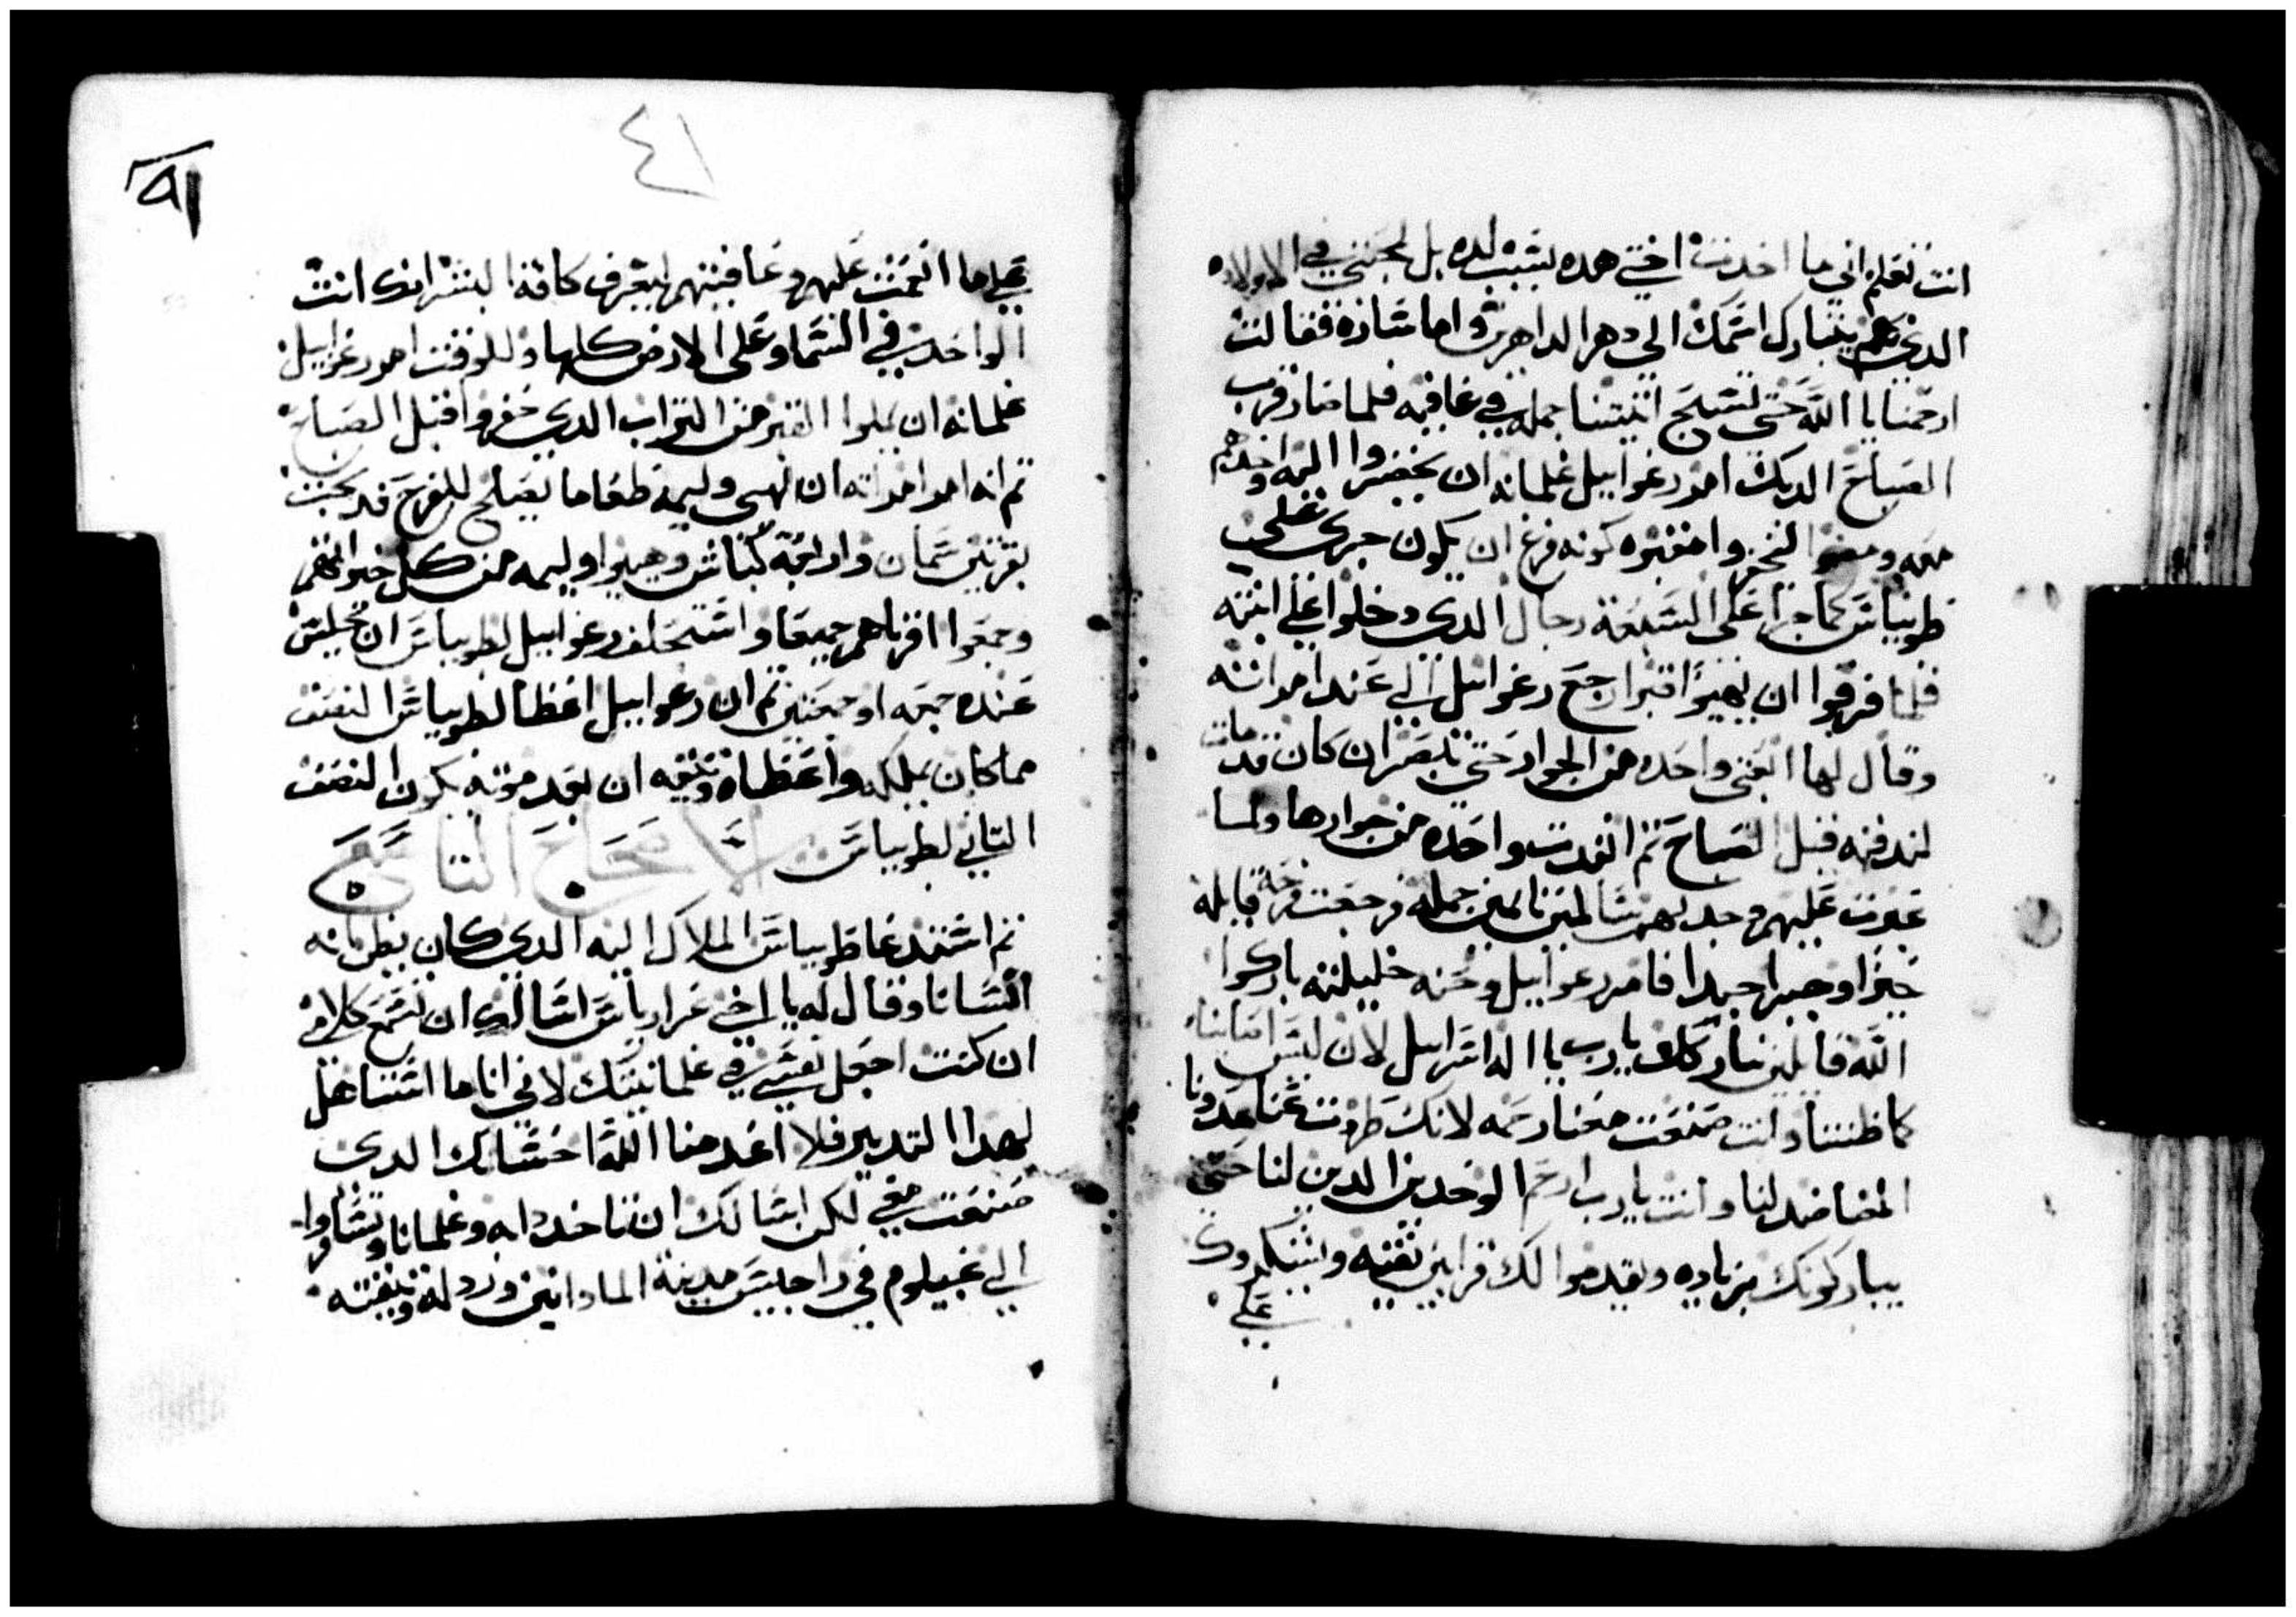 انت تعلم اني ما اخدت اختي هده بسبب لده بل لمحبتي في الاولاد
الدي بهم يتبارك اسمك الى دهر الداهرين واما ساره فقالت
ارحمنا يا الله حتى نسبح اتنيتنا جمله في عافيه فلما صار قرب
الصباح الديك امر رغوابيل غلمانه ان يحضروا اليه واخدهم
معه ومضوا ليحفروا مقبره كونه فزع ان يكون جرى على
طوبياس كما جرا على السبعة رجال الدي دخلوا على ابنته
فلما فرقوا ان يهيوا قبرا رجع رغوابيل الى عند امراته
وقال لها ابعتي واحده من الجوار حتى تبصر ان كان قد مات
لندفنه قبل الصباح تم انفدت واحده من جوارها ولما
عبرت عليهم وجدتهم سالمين نايمين جمله فرجعت فرحة قايله
خيرا وخبرا جيدا فامر رغوابيل وحنه خليلته باركوا
الله قايلين نباركك يا رب يا اله اسرايل لان ليس اصابنا
كما ظننا وانت صنعت معنا رحمه لانك طردت عنا عدونا
المضاضد لنا وانت يا رب ارحم الوحدين الدين لنا حتى
يباركونك بزياده ويقدموا لك قرابين نقيه ويشكروك
على
٤١
٩١
على ما انعمت عليهم وعافيتهم ليعرف كافة البشر انك انت
الواحد في السما وعلى الارض كلها وللوقت امر رغوابيل
غلمانه ان يملوا القبر من التراب الدي حفروا قبل الصباح
تم انه امر امراته ان تهيي وليمة طعاما يصلح للفرح فدبحت
بقرتين سمان واربعة كباش وهيوا وليمه من كل خير انهم
وجمعوا اقرباهم جميعا واستحلف رغوابيل لطوبياس ان يجلس
عنده جمعه او جمعتين تم ان رغوابيل اعطا لطوبياس النصف
مما كان يملكه واعطاه وتيقه ان بعد موته يكون النصف
التاني لطوبياس الاصحاح التاسع
تم استدعا طوبياس الملاك اليه الدي كان يظن انه
انسانا وقال له يا اخي عزارياس اسالك ان تسمع كلامي
ان كنت اجعل نفسي في غلمانيتك لاني انا ما استاهل
لهدا التدبير فلا اعدمنا الله احسانك الدي
صنعت معي لكن اسالك ان تاخد دابه وغلمانا وتسافروا
الى غبيلوم في راجيس مدينة المادانيين ورد له وتيقته